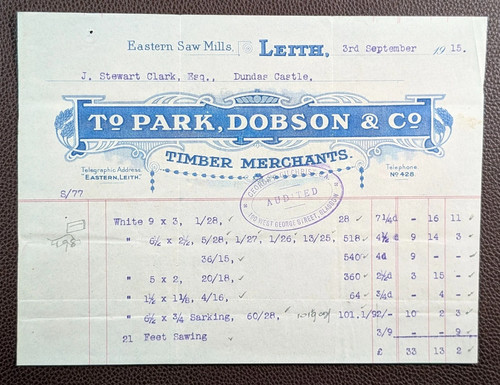 Eastern Saw Mills, LEITH, 3rd September 1915.
J. Stewart Clark, Esq., Dundas Castle,
To PARK, DOBSON & Co
TIMBER MERCHANTS.
Telegraphic Address, EASTERN, LEITH.
Telephone No 428.
S/77
AUDITED
190 WEST GEORGE STREET, GLASGOW
White 9 x 3, 1/28, 28 7¼d - 16 11
" 6½ x 2½, 5/28, 1/27, 1/26, 13/25, 518 4½d 9 14 3
36/15, 540 4d 9 - -
" 5 x 2, 20/18, 360 2½d 3 15 -
" 1½ x 1⅛, 4/16, 64 ¾d - 4 -
" 6½ x ¾ Sarking, 60/28, 101.1/92/- 10 2 3
21 Feet Sawing 3/9 - - 9
£ 33 13 2